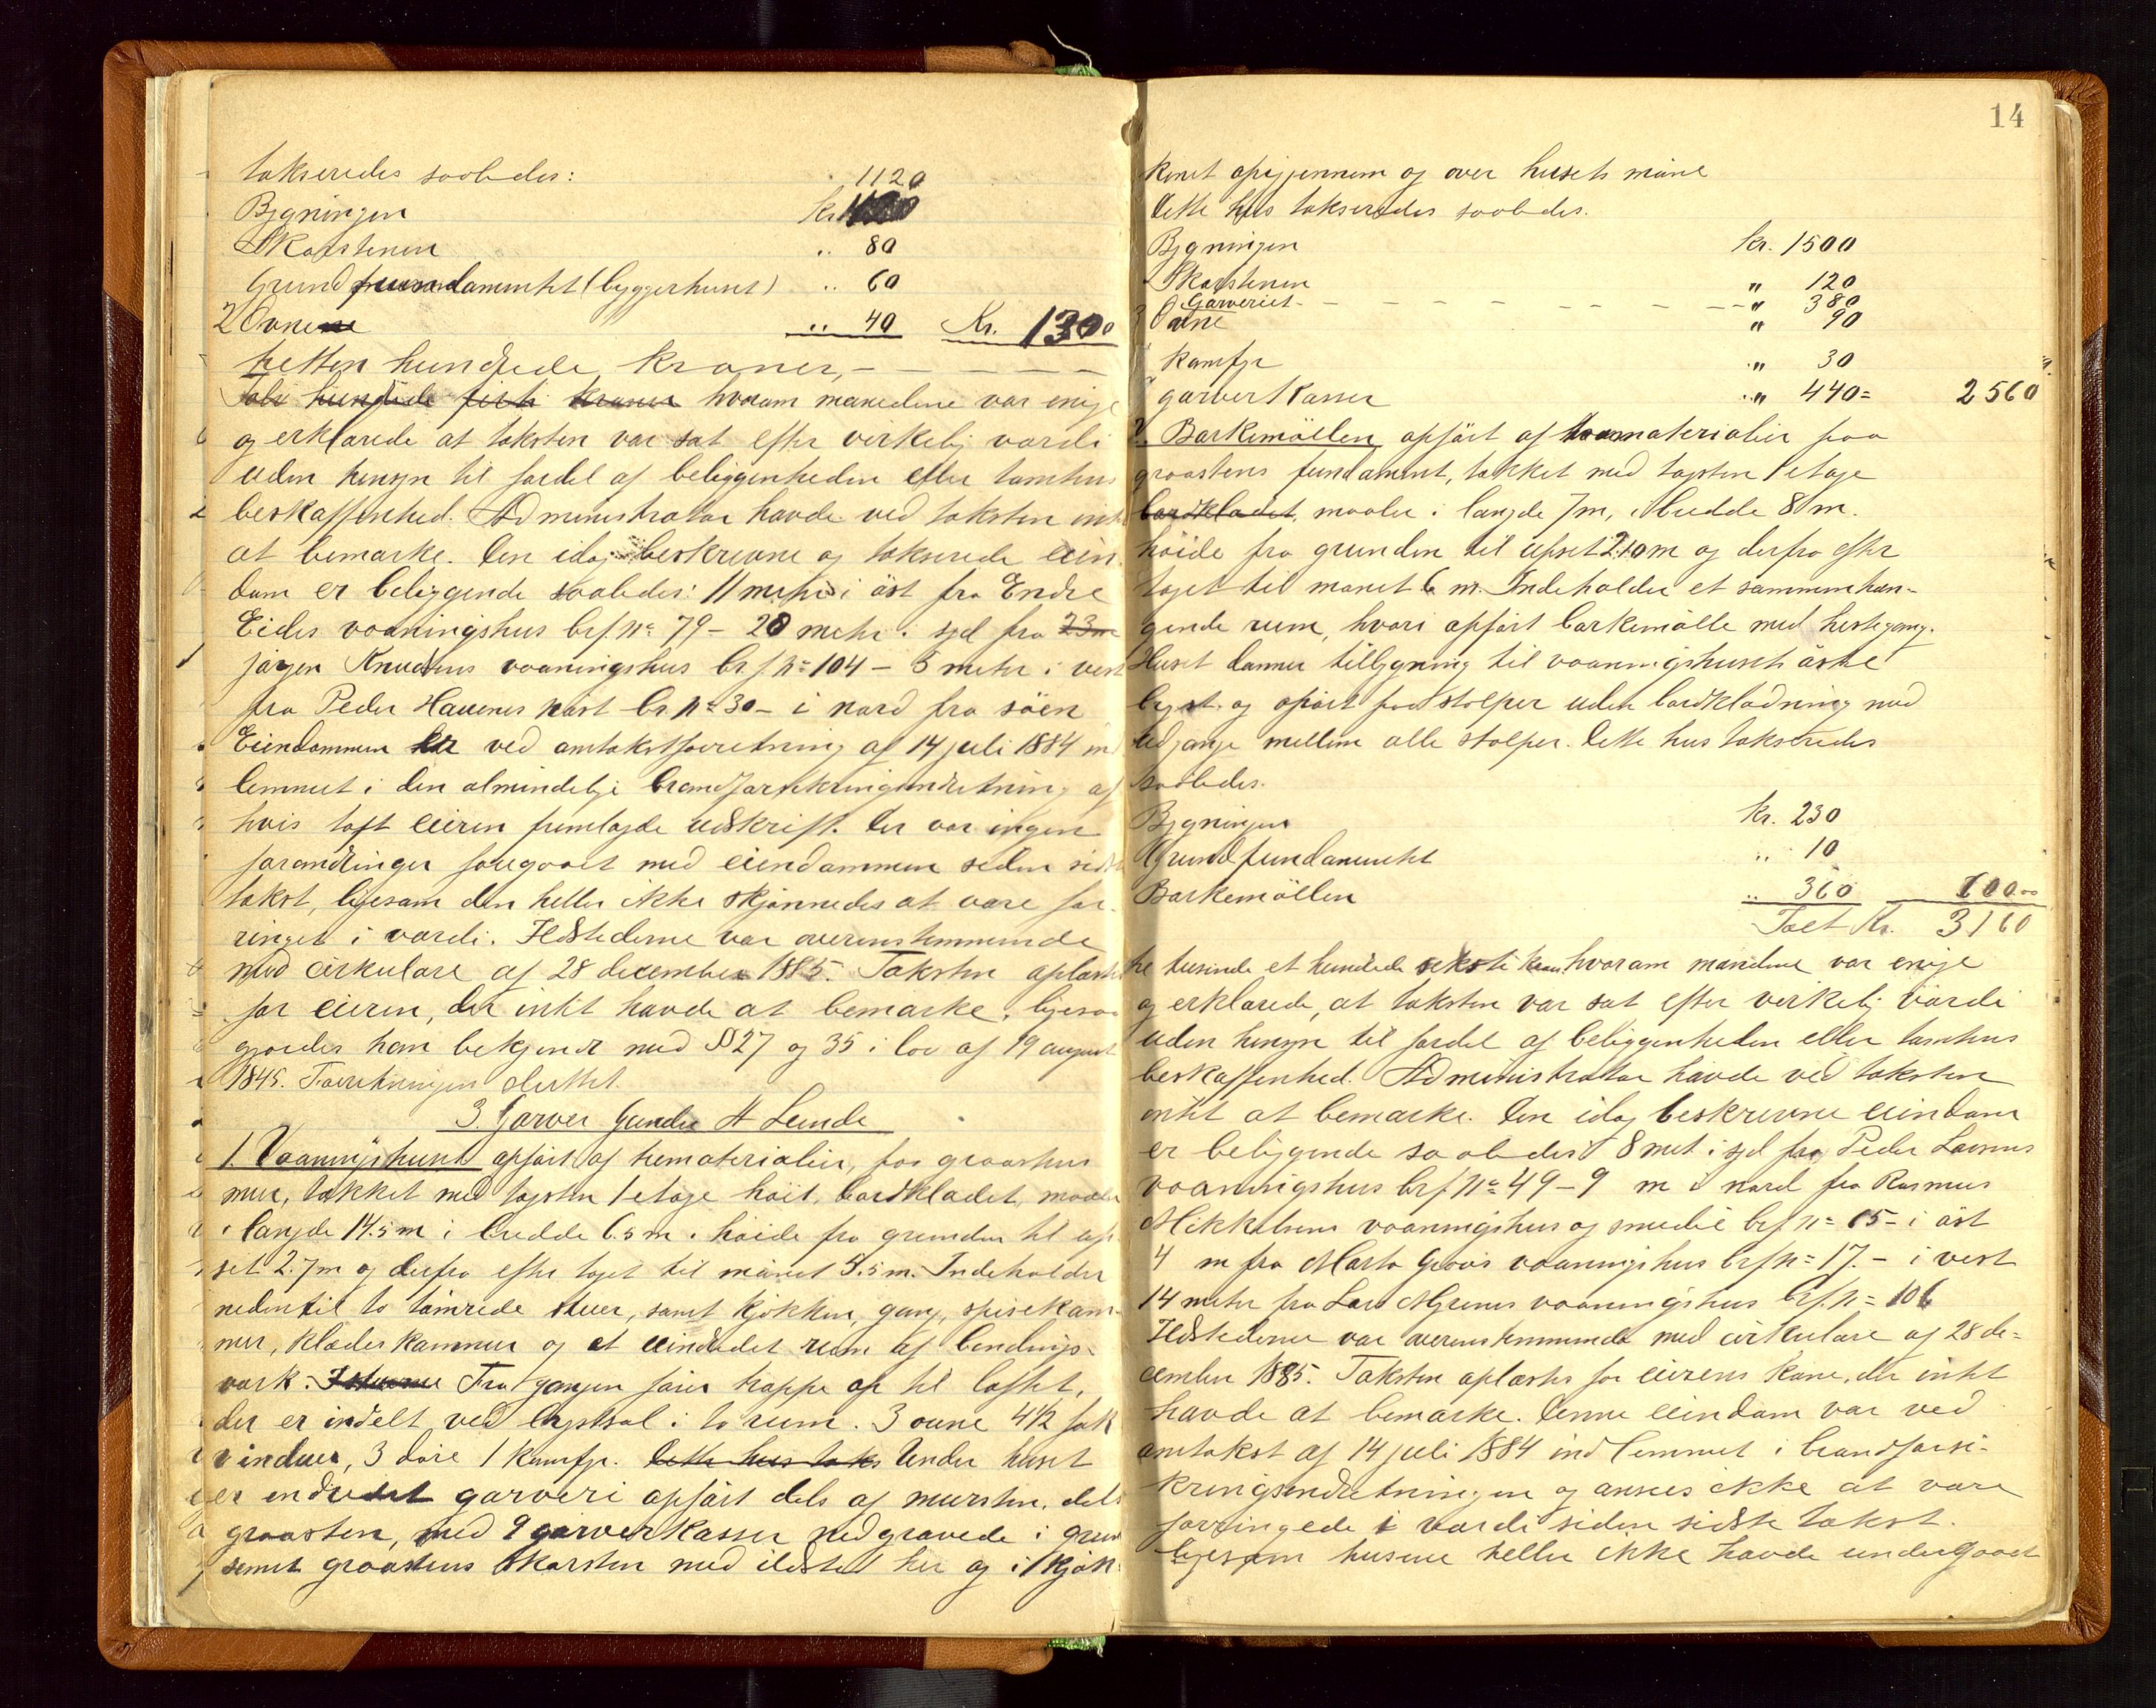 takseredes saaledes: 1120
Bygningen kr.
Skorstenen .. 80
Grundfundamentet (byggerhuset) .. 60
2 Ovne .. 40 Kr. 1300
tretten hundrede kroner, — — — — —
Tolv hundrede firti kroner hvorom mændene var enige
og erklærede at taksten var sat efter virkelig værdi
uden hensyn til fordel af beliggenheden eller tomtens
beskaffenhed. Administrator havde ved taksten intet
at bemærke. Den idag beskrevne og takserede eien
dom er beliggende saaledes: 11 meter i øst fra Endre
Eides vaaningshus brf. No 79 – 20 meter i syd fra 23m
Jørgen Knudsens vaaningshus br.f. No 104 – 5 meter i vest
fra Peder Hauenes nøst br. No 30 – i nord fra søen
Eiendommen er ved omtakstforretning af 14 juli 1884 ind
lemmet i den almindelige brandforsikringsindretning af
hvis taxt eieren fremlagde udskrift. Der var ingen
forandringer foregaaet med eiendommen siden sidste
takst, ligesom den heller ikke skjønnedes at være for-
ringet i værdi. Ildstederne var overensstemmende
med cirkulære af 28 december 1885. Taksten oplæstes
for eieren, der intet havde at bemærke, ligesaa
gjordes han bekjendt med §§ 27 og 35 i lov af 19 august
1845. Forretningen sluttet.
3. Garver Gundre A Lunde
1. Vaaningshuset opført af træmaterialier, paa graastens
mur, tækket med tagsten 1 etage høit, bordklædet, maaler
i længde 14.5 m i bredde 6.5 m. høide fra grunden til op
set 2.7m og derfra efter taget til mønet 3.5 m. Indeholder
nedentil to tømrede stuer, samt kjøkken, gang, spisekam-
mer, klædeskammer og et eindredet rum af bindings-
værk. I stuerne Fra gangen fører trappe op til loftet,
der er indelt ved brystval i to rum. 3 ovne 4 1/2 fak
vinduer, 3 døre 1 komfyr. Dette hus taks Under huset
er indredet garveri opført dels af mursten, dels
graasten, med 9 garverkasser nedgravede i grun
samt graastens skorsten med ildsted her og i kjøk
14
kenet opigjennem og over husets møne
Dette hus takseredes saaledes.
Bygningen kr. 1500
Skorstenen " 120
Garveriet – – – – – – – – " 380
3 Ovne " 90
1 Komfyr " 30
9 garverkasser " 440= 2560
2. Barkemøllen opført af træmaterialier paa
graastens fundament, tækket med tagsten 1 etage
bordklædet, maaler i længde 7m, i bredde 8 m.
høide fra grunden til opset 2.10 m og derfra efter
taget til mønet 6 m. Indeholder et sammenhæn-
gende rum, hvori opført barkemølle med hestegang.
Huset danner tilbygning til vaaningshusets østre
bygst. og opført paa stolper uden bordklædning med
udgange mellem alle stolper. Dette hus takseredes
saaledes.
Bygningen kr. 230
Grundfundamentet .. 10
Barkemøllen .. 360 600 00
Talt Kr. 3160
tre tusinde et hundrede seksti kron. hvorom mændene var enige
og erklærede, at taksten var sat efter virkelig værdi
uden hensyn til fordel af beliggenheden eller tomtens
beskaffenhed. Administrator havde ved taksten
intet at bemærke. Den idag beskrevne eiendom
er beliggende saaledes: 8 met. i syd fra Peder Larsens
vaaningshus brf No 49 – 9 m i nord fra Rasmus
Mikkelsens vaaningshus og smedie brf No 15 – i øst
4 m fra Marta Groos vaaningshus brf No 17. – i vest
14 meter fra Lars Mgrenes vaaningshus brf. No 106
Ildstederne var overensstemmende med cirkulære af 28 de=
cember 1885. Taksten oplæstes for eierens kone, der intet
havde at bemærke. Denne eiendom var ved
omtakst af 14 juli 1884 indlemmet i brandforsi-
kringsindretningen og ansees ikke at være
forringede i værdi siden sidste takst.
ligesom husene heller ikke havde undergaaet